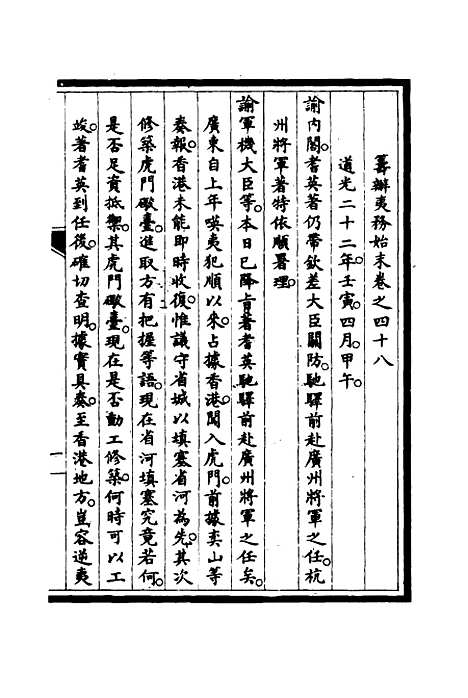 籌辦夷務始末卷之四十八
道光二十二年壬寅。四月。甲午。
諭內閣。耆英著仍帶欽差大臣關防。馳驛前赴廣州將軍之任。杭
州將軍著特依順署理。
諭軍機大臣等。本日已降旨著耆英馳驛前赴廣州將軍之任矣。
廣東自上年㗸夷犯順以來。占據香港。闖入虎門。前據奕山等
奏報香港未能即時收復。惟議守省城以填塞省河為先。其次
修築虎門礮臺。進取方有把握等語。現在省河填塞究竟若何。
是否足資抵禦。其虎門礮臺。現在是否動工修築。何時可以工
竣。著耆英到任後。確切查明。據實具奏。至香港地方。豈容逆夷